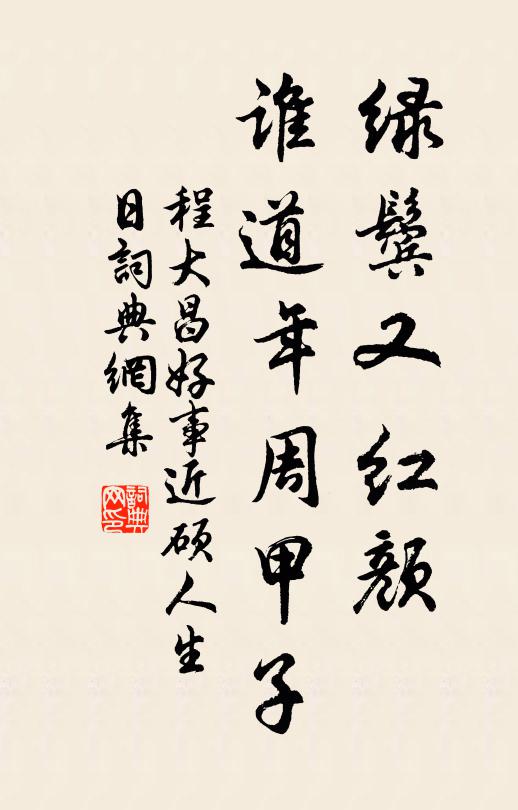 绿鬓又红颜
谁道年周甲子
程大昌好事近硕人生
日詞典網集
詞典网印